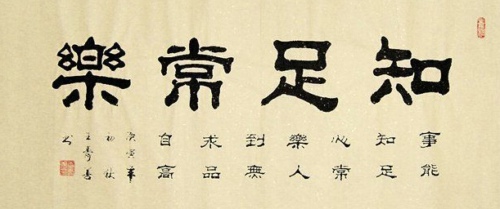 知足常樂
事能
知足
心常
樂人
到無
求品
自高
庚寅年
初秋
书